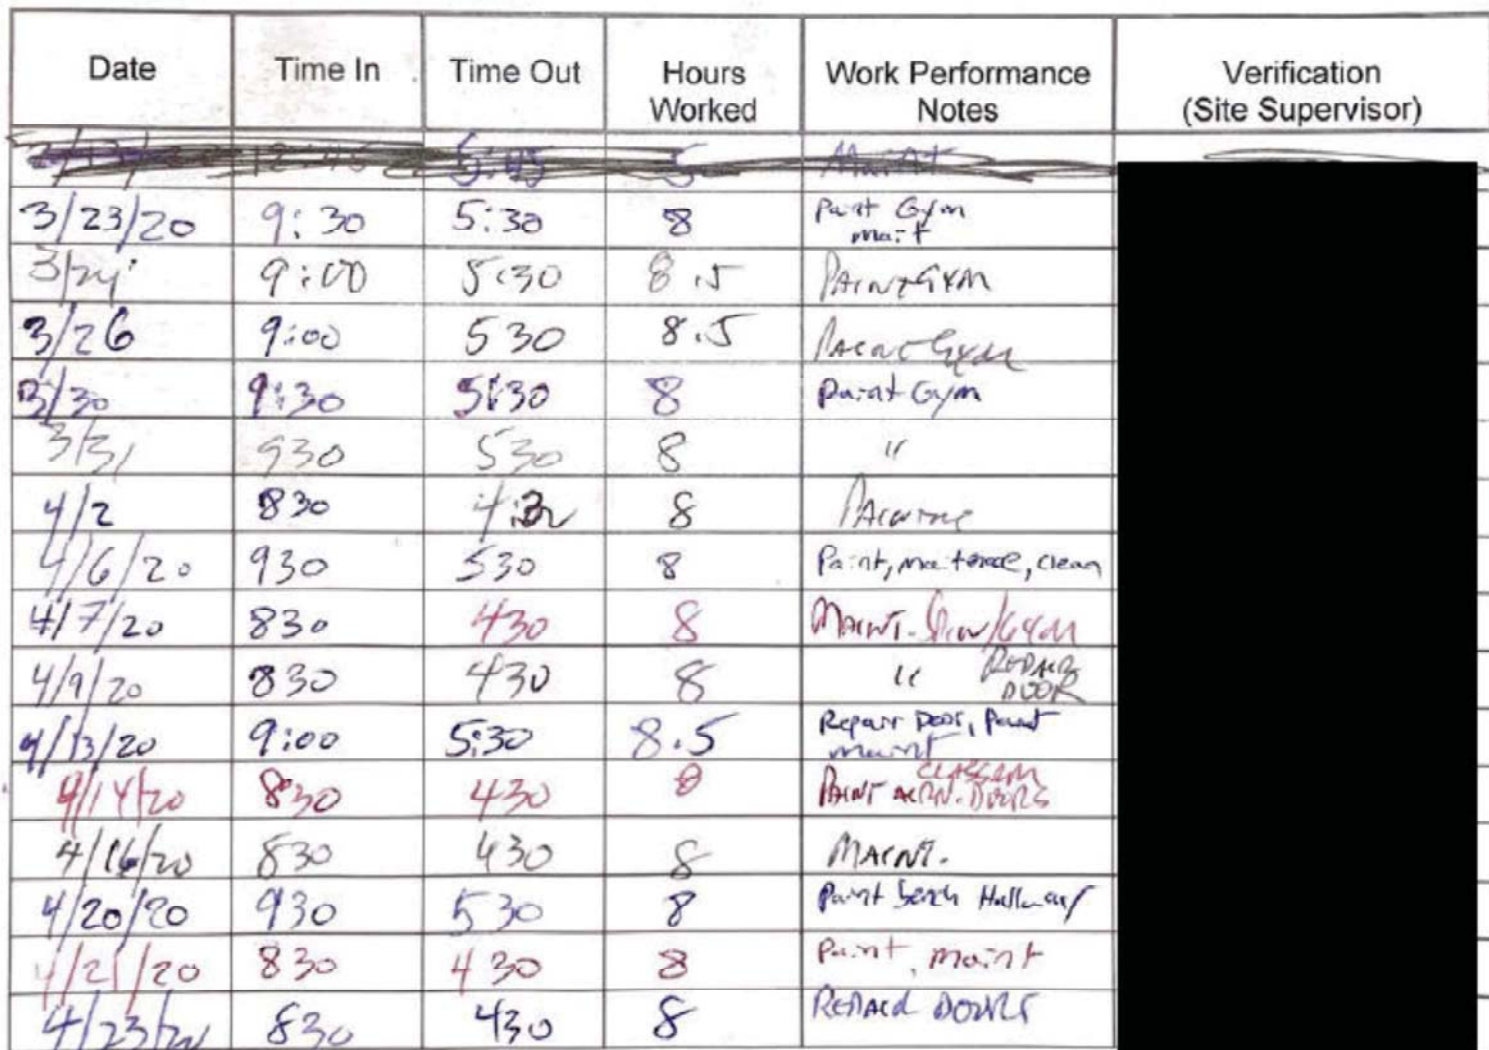 Date Time In Time Out Hours Worked Work Performance Notes Verification (Site Supervisor)
12:45 5:45 5 Maint
3/23/20 9:30 5:30 8 Paint Gym maint
3/24 9:00 5:30 8.5 Paint Gym
3/26 9:00 530 8.5 Paint Gym
3/30 9:30 5:30 8 Paint Gym
3/31 930 530 8 "
4/2 830 4:30 8 Painting
4/6/20 930 530 8 Paint, maitenace, clean
4/7/20 830 430 8 Maint. /Gym
4/9/20 830 430 8 " Repair Door
4/13/20 9:00 5:30 8.5 Repair Door, Paint maint
4/14/20 830 430 8 Paint Doors
4/16/20 830 430 8 Maint.
4/20/20 930 530 8 Paint bench Hallway
4/21/20 830 430 8 Paint, maint
4/23/20 830 430 8 Repair Doors